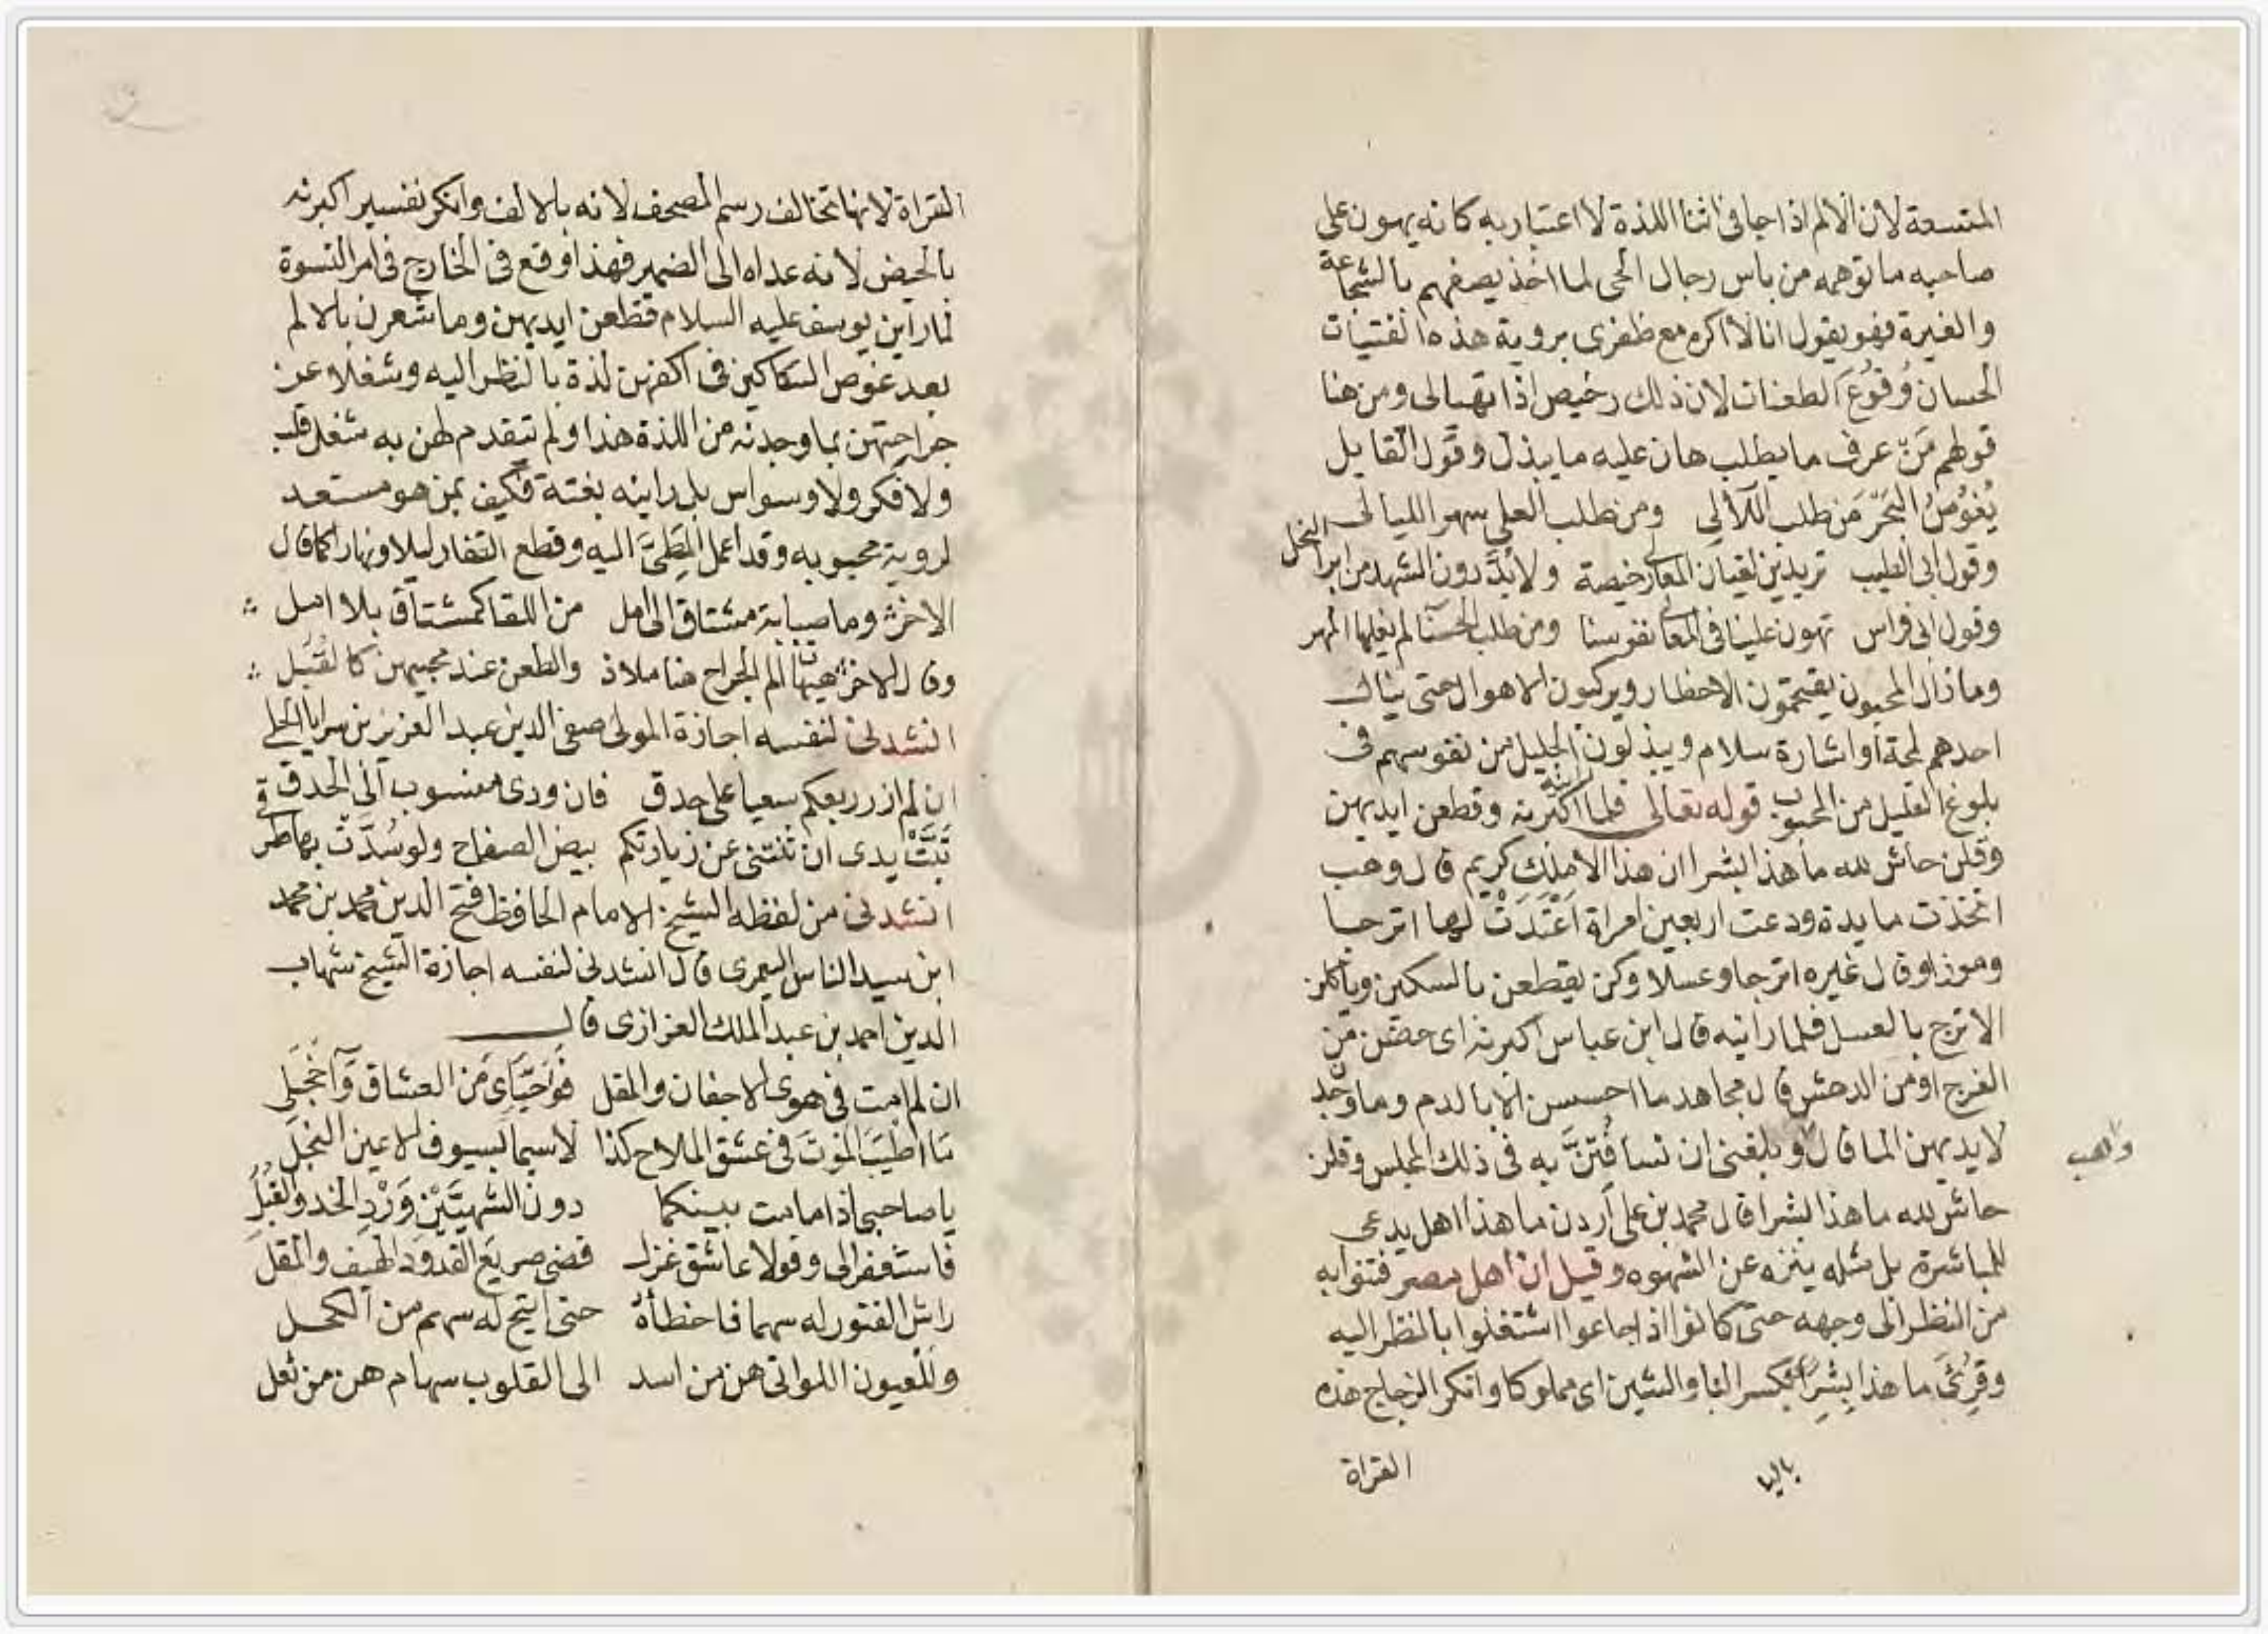 المتسعة لان الالم اذا جا فى اثنا اللذة لا اعتبار به كانه يهون على
صاحبه ما توهمه من باس رجال الحى لما اخذ يصفهم بالشجاعة
والغيرة فهو يقول انا لا اكره مع ظفرى بروية هذه الفتيات
الحسان وُقُوعَ الطعنات لان ذلك رخيص اذا تهيا لى ومن هنا
قولهم مَنْ عرف ما يطلب هان عليه ما يبذل وقول القايل
يُغوُصُ البَحرَ مَن طلب اللآلي ومن طلب العلى سهر الليالى
وقول ابى الطيب تريدين لقيان المعالى رخيصة ولا بُدَّ دون الشهد من ابر النحل
وقول ابى فراس تهون علينا فى المعالى نفوسنا ومن طلب الحسنا لم يغلها المهر
وما زال المحبون يقتحمون الاخطار ويركبون الاهوال حتى ينال
احدهم لمحة او اشارة سلام ويبذلون الجليل من نفوسهم فى
بلوغ القليل من المحبوب قوله تعالى فلما راينه اكبرنه وقطعن ايديهن
وقلن حاش لله ما هذا بشرا ان هذا الا ملك كريم قال وهب
اتخذت مايدة ودعت اربعين امراة اَعْتَدَتْ لها اترجا
وموزا وقال غيره اترجا وعسلا وكن يقطعن بالسكين وياكلن
الاترج بالعسل فلما راينه قال ابن عباس اكبرنه اى حضن من
الفرج او من الدهش قال مجاهد ما احسسن الا بالدم وما وجد
لايديهن الما قال و بلغنى ان نسا فُتِنَّ به فى ذلك المجلس وقلن
واهب
حاش لله ما هذا بشرا قال محمد بن على اردن ما هذا اهل يدعى
للمباشرة بل مثله ينزه عن الشهوه وقيل ان اهل مصر فتنوا به
من النظر الى وجهه حتى كانوا اذا جاعوا اشتغلوا بالنظر اليه
وقرئَ ما هذا بِشِرًا بكسر البا والشين اى مملوكا وانكر الزجاج هذه
باليا
القراة
القراة لانها تخالف رسم المصحف لانه بالالف وانكر تفسير اكبرنه
بالحيض لانه عداه الى الضمير فهذا وقع فى الخارج فى امر النسوة
لما راين يوسف عليه السلام قطعن ايديهن وما شعرن بالالم
بعد غوص السكاكين فى اكفهن لذة بالنظر اليه وشغلا عن
جراحتهن بما وجدنه من اللذة هذا ولم يتقدم لهن به شغل قلب
ولا فكر ولا وسواس بل راينه بغتة فكيف بمن هو مستعد
لروية محبوبه وقد اعمل المطىَّ اليه وقطع القفار ليلا ونهارا كما قال
الاخر وما صبابة مشتاق الى امل من اللقا كمشتاق بلا امل
وقال الاخر هيهات الم الجراح هنا ملاذ والطعن عند محبيهن كالقُبَل
انشدنى لنفسه اجازة المولى صفى الدين عبد العزيز بن سرايا الحلى
ان لم ازر ربعكم سعيا على حدق فان ودى منسوب الى الحدق
تَبَّتْ يدى ان تثنتنى عن زيارتكم بيض الصفاح ولو سُدَّتْ بها طرقى
انشدنى من لفظه الشيخ الامام الحافظ فتح الدين محمد بن محمد
ابن سيد الناس اليعمرى قال انشدنى لنفسه اجازة الشيخ شهاب
الدين احمد بن عبد الملك العزازى قال
ان لم امت فى هوى الاجفان والمقل فواحيَاى مَن العشاق وآخجلى
مَا اطيَبَ الموتَ فى عشق الملاح كذا لاسيما بسيوف الاعين النجل
يا صاحبى اذا ما مت بينكما دون الشهيَّيْن وَرْدِ الخد والقبُلِ
فاستغفرا لى وقولا عاشق غزل قضى صريع القدود الهيف والمقل
راش الفتور له سهما فاخطاه حتى اتيح له سهم من الكحل
وللعيون اللواتى هن من اسد الى القلوب سهام هن من ثعل